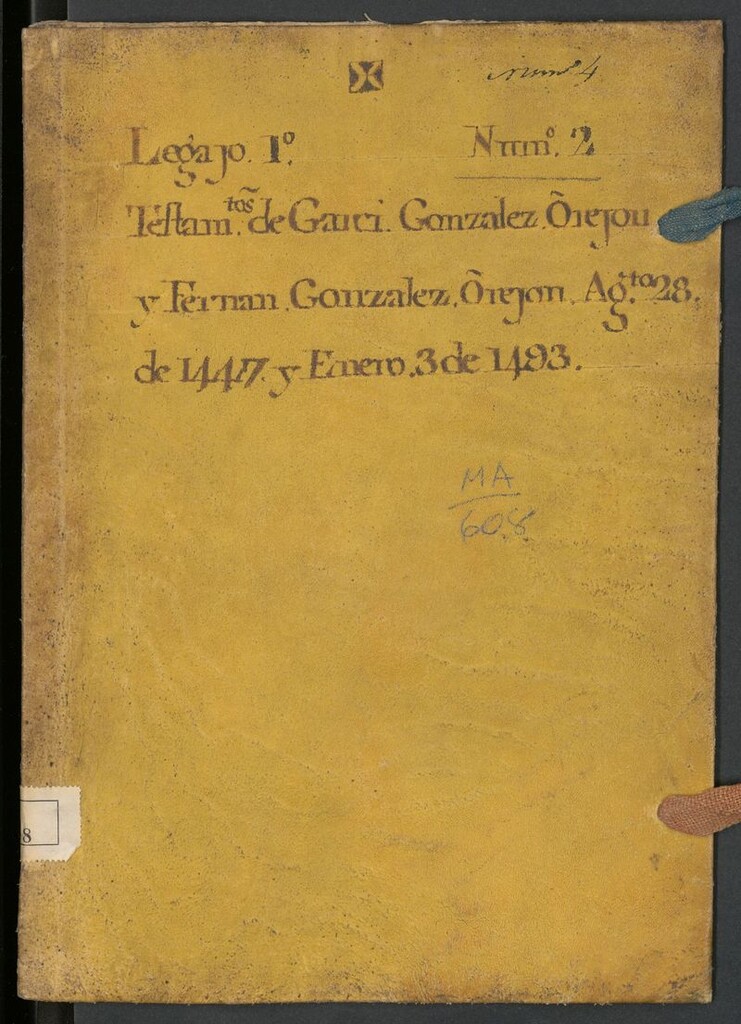 num⁰ 4
Legajo. 1º. Num⁰. 2
Testam.tos de Garci. Gonzalez. Õrejon
y Fernan. Gonzalez. Õrejon. Ag.to 28.
de 1447. y Enero. 3 de 1493.
MA
608
8